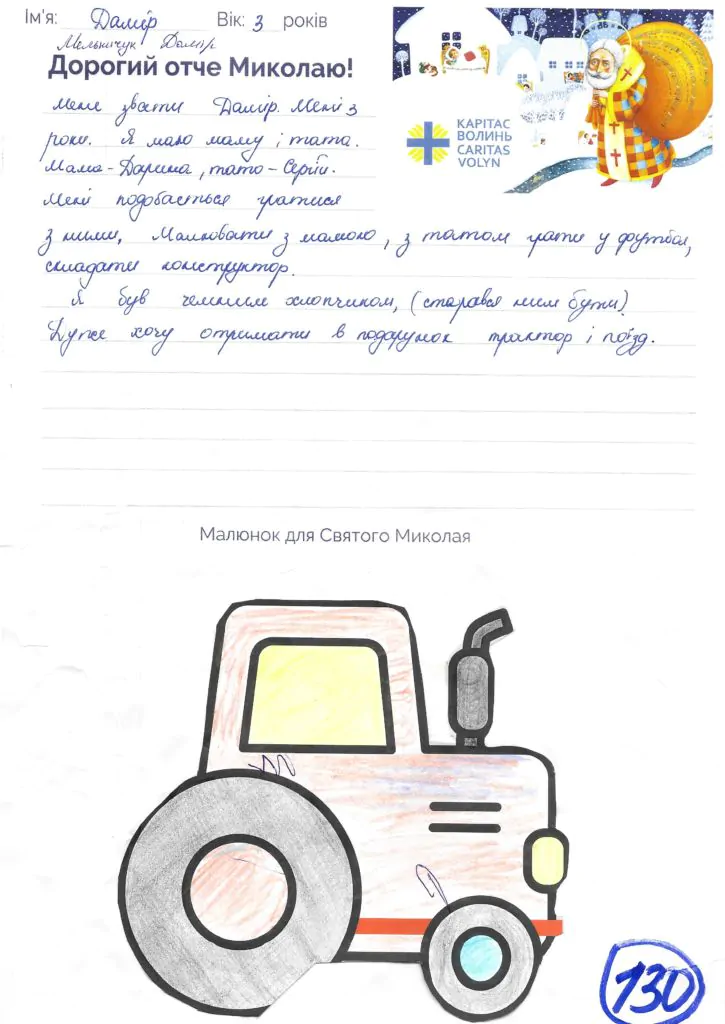 Ім'я: Дамір Вік: 3 років
Мельничук Дамір
Дорогий отче Миколаю!
КАРІТАС
ВОЛИНЬ
CARITAS
VOLYN
Мене звати Дамір. Мені 3
роки. Я маю маму і тата.
Мама - Дарина, тато - Сергій.
Мені подобається гратися
з ними, Малювати з мамою, з татом грати у футбол,
складати конструктор.
Я був чемним хлопчиком, (старався ним бути).
Дуже хочу отримати в подарунок трактор і поїзд.
Малюнок для Святого Миколая
130